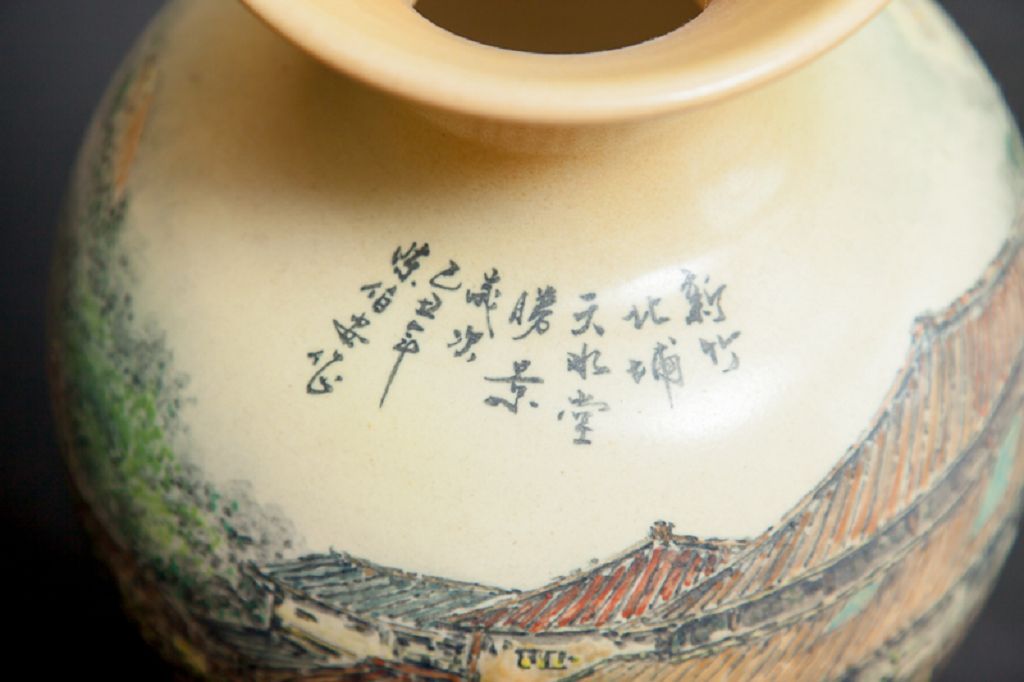 新竹
北埔
天水堂
勝景
歲次
己丑年
柴伯安作